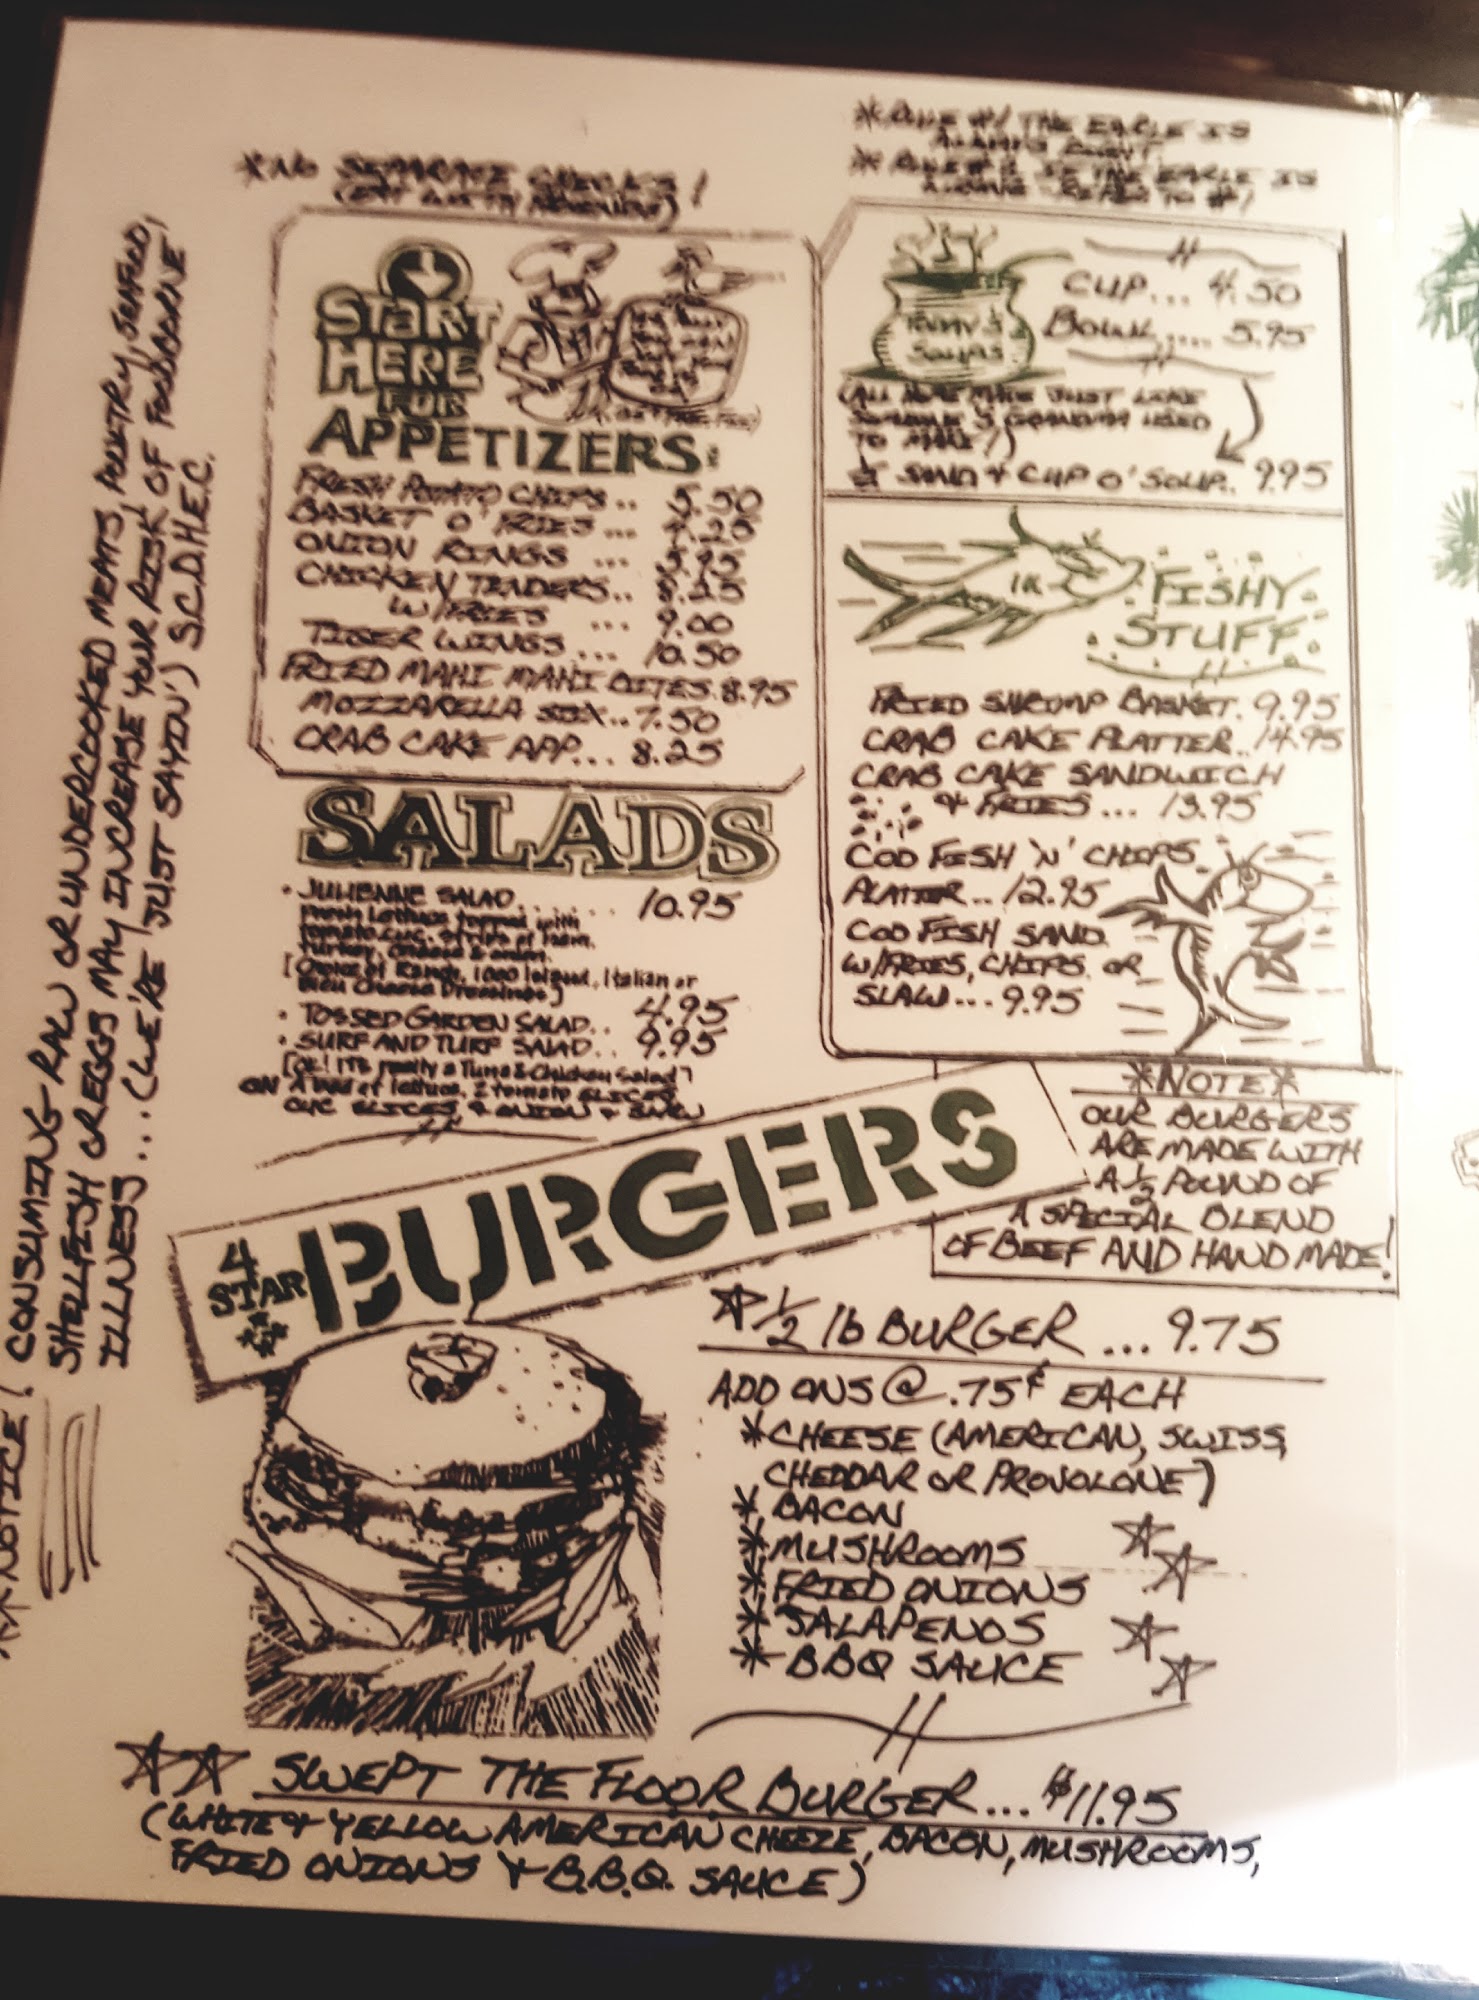 *NO SEPARATE CHECKS!
*RULE #1 THE EAGLE IS
ALWAYS RIGHT.
*RULE #2 IF THE EAGLE IS
WRONG REFER TO #1
**NOTICE! CONSUMING RAW OR UNDERCOOKED MEATS, POULTRY, SEAFOOD,
SHELLFISH OR EGGS MAY INCREASE YOUR RISK OF FOODBORNE
ILLNESS...(WE'RE JUST SAYIN') S.C.D.H.E.C.
START
HERE
FOR
APPETIZERS:
FRESH POTATO CHIPS.. 5.50
BASKET O' FRIES... 4.25
ONION RINGS ... 5.95
CHICKEN TENDERS.. 8.25
W/FRIES ... 9.00
TIGER WINGS... 10.50
FRIED MAHI MAHI BITES. 8.95
MOZZARELLA STIX.. 7.50
CRAB CAKE APP... 8.25
SALADS
• JULIENNE SALAD....... 10.95
Fresh Lettuce topped with
tomato, cuc, strips of ham,
turkey, cheese & onion.
[Choice of Ranch, 1000 Island, Italian or
Bleu Cheese Dressings)
• TOSSED GARDEN SALAD.. 4.95
• SURF AND TURF SALAD.. 9.95
[OK! IT'S really a Tuna & Chicken Salad]
ON A bed of lettuce, 2 tomato SLICES,
CUC SLICES, & ONION &
CUP... 4.50
BOWL.... 5.95
(ALL HOME MADE JUST LIKE
SOMEONE'S GRANDMA USED
TO MAKE!)
½ SAND & CUP O' SOUP.. 9.95
FISHY
STUFF
FRIED SHRIMP BASKET. 9.95
CRAB CAKE PLATTER.. 14.95
CRAB CAKE SANDWICH
& FRIES ... 13.95
COD FISH 'N' CHIPS
PLATTER.. 12.95
COD FISH SAND.
W/FRIES, CHIPS OR
SLAW... 9.95
4
STAR
BURGERS
*NOTE*
OUR BURGERS
ARE MADE WITH
A ½ POUND OF
A SPECIAL BLEND
OF BEEF AND HAND MADE!
½ lb BURGER ... 9.75
ADD ONS @ .75¢ EACH
*CHEESE (AMERICAN, SWISS,
CHEDDAR OR PROVOLONE)
*BACON
*MUSHROOMS
*FRIED ONIONS
*JALAPENOS
*BBQ SAUCE
SWEPT THE FLOOR BURGER... $11.95
(WHITE & YELLOW AMERICAN CHEEZE, BACON, MUSHROOMS,
FRIED ONIONS & B.B.Q. SAUCE)